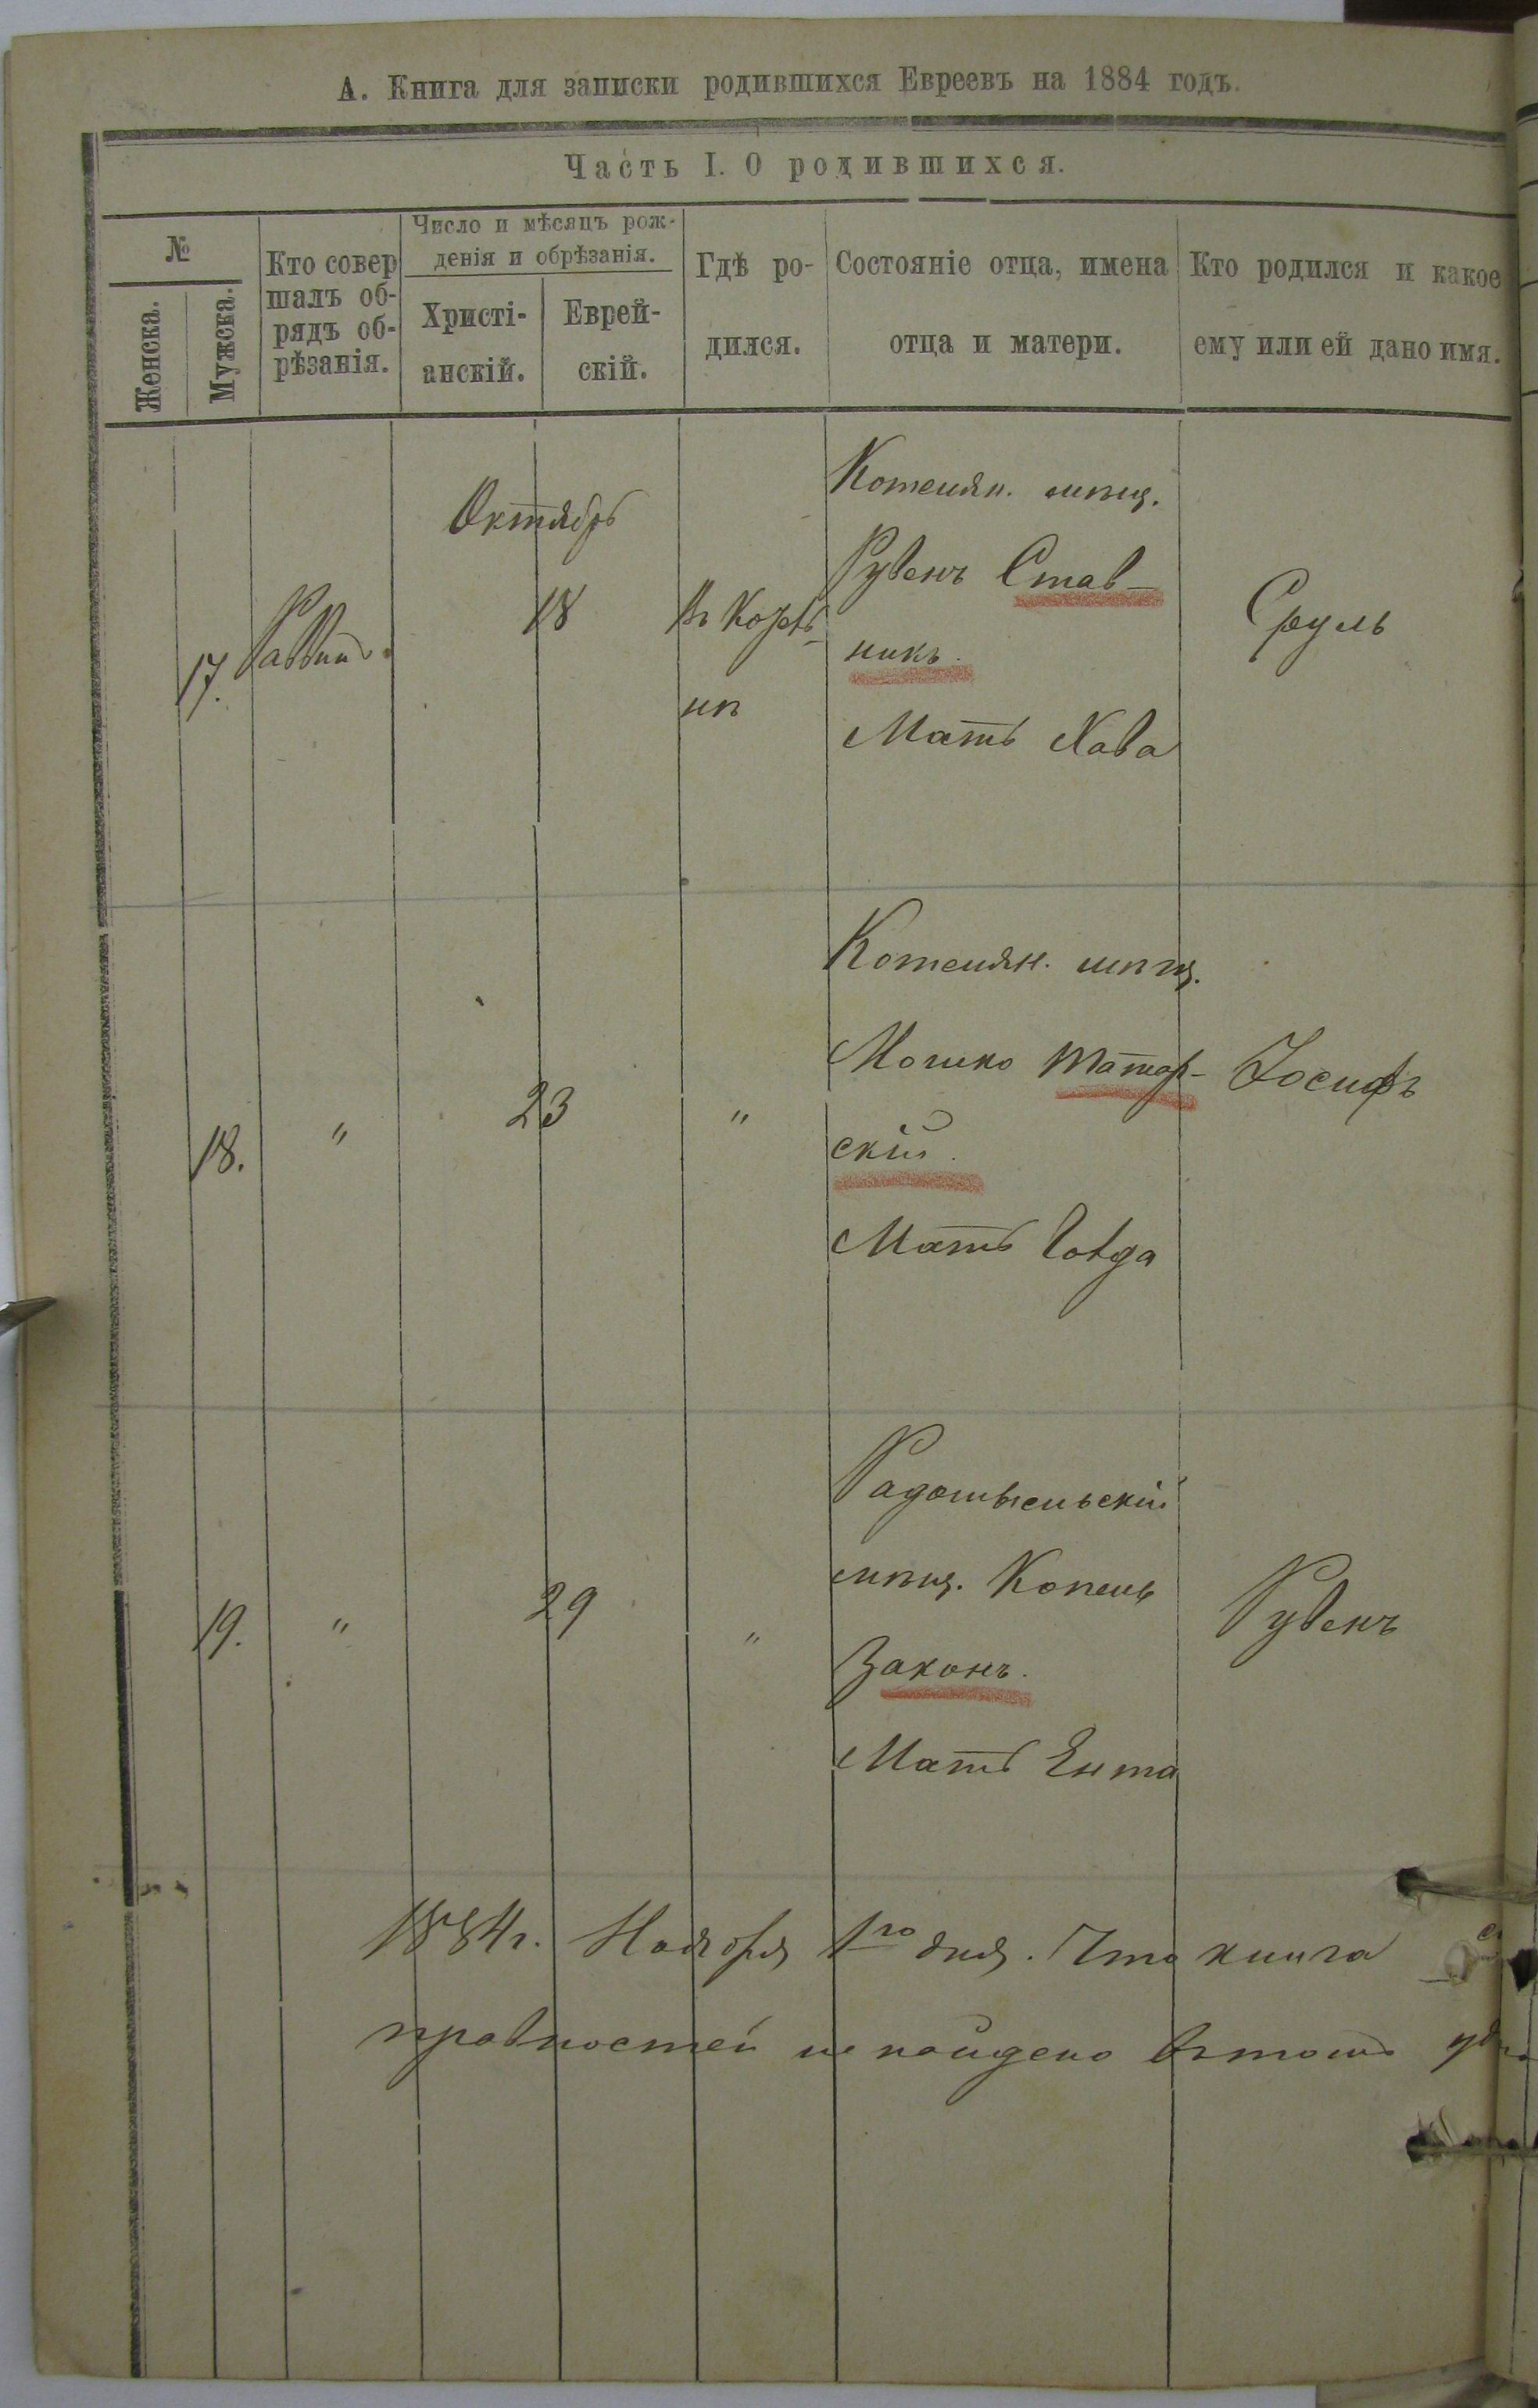 А. Книга для записки родившихся Евреевъ на 1884 годъ.
Часть I. О родившихся.
№
Женска.
Мужска.
Кто совер
шалъ об-
рядъ об-
рѣзанія.
Число и мѣсяцъ рож-
денія и обрѣзанія.
Христі-
анскій.
Еврей-
скій.
Гдѣ ро-
дился.
Состояніе отца, имена
отца и матери.
Кто родился и какое
ему или ей дано имя.
Октябрь
17.
Раввинъ
18
Въ Корн
нѣ
Котельн. мѣщ.
Рувенъ Став-
никъ.
Мать Хава
Сруль
18.
"
23
"
Котельн. мѣщ.
Мошко Татар-
скій.
Мать Говда
Іосифъ
19.
"
29
"
Радомысльскій
мѣщ. Копель
Законъ.
Мать Ента
Рувенъ
1884 г. Ноября 1го дня. Что книга
правностей не найдено въ томъ